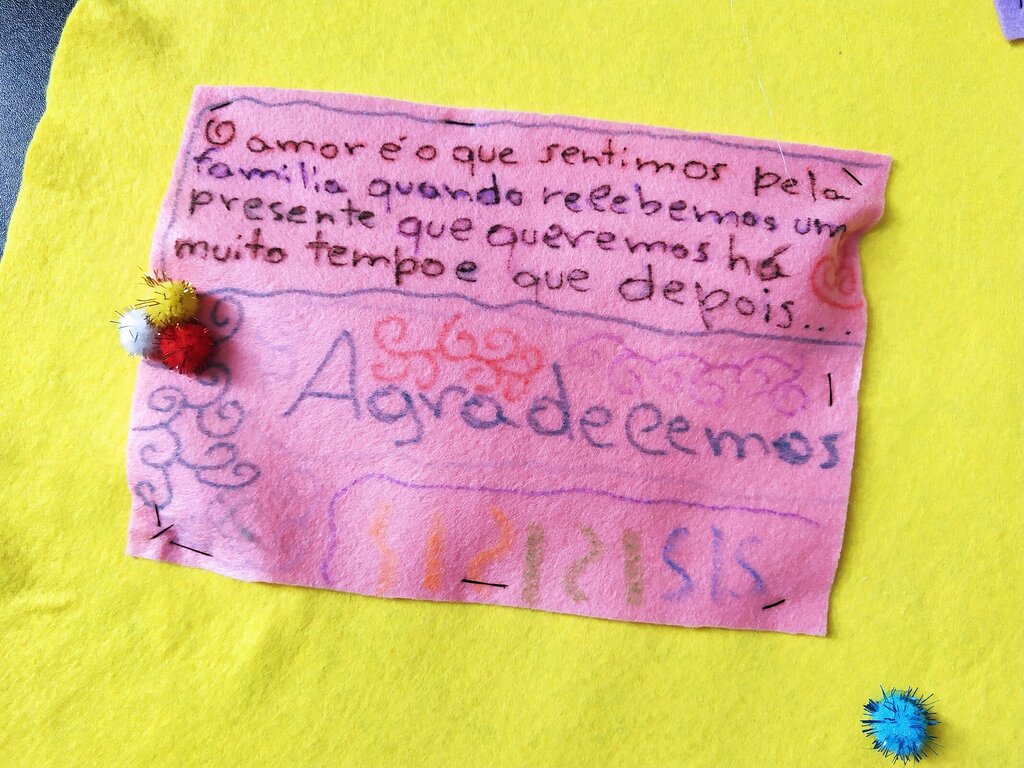 O amor é o que sentimos pela
família quando recebemos um
presente que queremos há
muito tempo e que depois...
Agradecemos